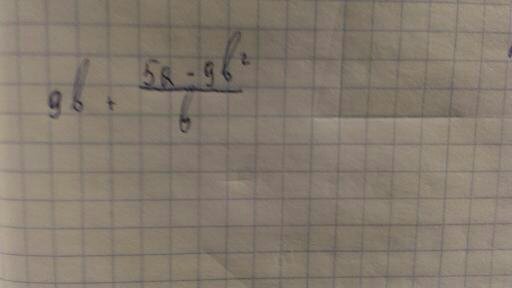 9b + \frac{5a - 9b^2}{b}